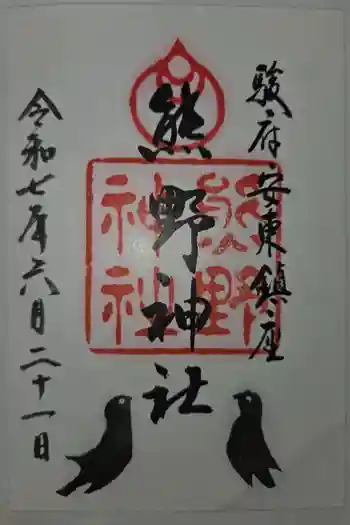 駿府安東鎮座
熊野神社
熊野
神社
令和七年六月二十一日